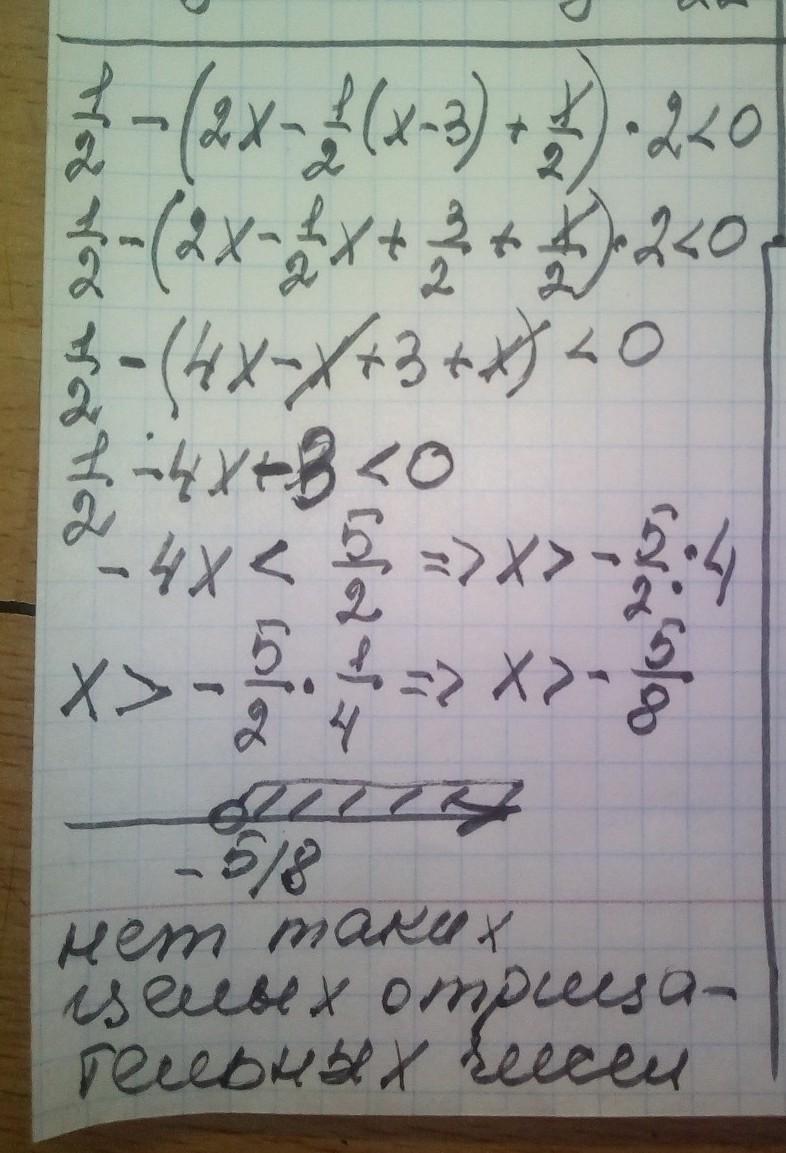 1/2 - (2x - 1/2(x-3) + x/2) · 2 < 0
1/2 - (2x - 1/2x + 3/2 + x/2) · 2 < 0
1/2 - (4x - x + 3 + x) < 0
1/2 - 4x - 3 < 0
- 4x < 5/2 => x > - 5/2·4
x > - 5/2 · 1/4 => x > - 5/8
- 5/8
нет таких
целых отрица-
тельных чисел